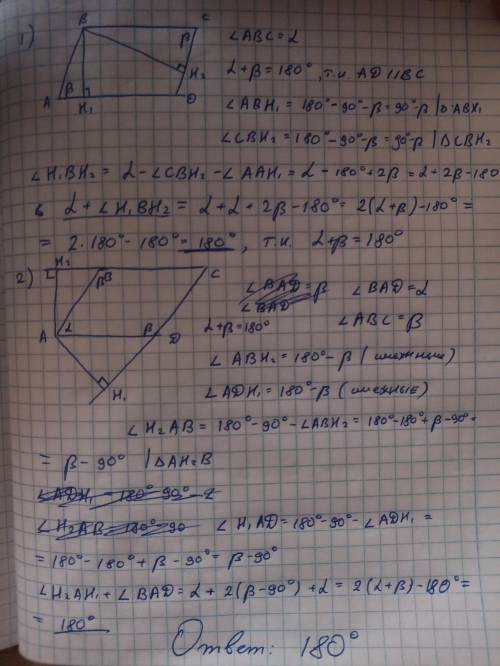 1)
B C
β
H₂
A β H₁ D
∠ABC = α
α+β=180°, т.к. AD || BC
∠ABH₁ = 180°-90°-β=90°-β | ΔABH₁
∠CBH₂ = 180°-90°-β=90°-β | ΔCBH₂
∠H₁BH₂ = α-∠CBH₂-∠AAH₁ = α-180°+2β = α+2β-180
α+∠H₁BH₂ = α+α+2β-180°= 2(α+β)-180° =
= 2·180°-180°=180°, т.к. α+β=180°
2)
H₂ B C
β
A α β D
H₁
∠BAD=β ∠BAD=α
∠BAD
α+β=180° ∠ABC=β
∠ABH₂=180°-β (смежные)
∠ADH₁=180°-β (смежные)
∠H₂AB = 180°-90°-∠ABH₂=180°-180°+β-90°=
= β-90° | ΔAH₂B
∠ADH₁=180°-90°-α
∠H₂AB=180°-90 ∠H₁AD=180°-90°-∠ADH₁ =
=180°-180°+β-90°=β-90°
∠H₂AH₁+∠BAD=α+2(β-90°)+α=2(α+β)-180°=
= 180°
Ответ: 180°